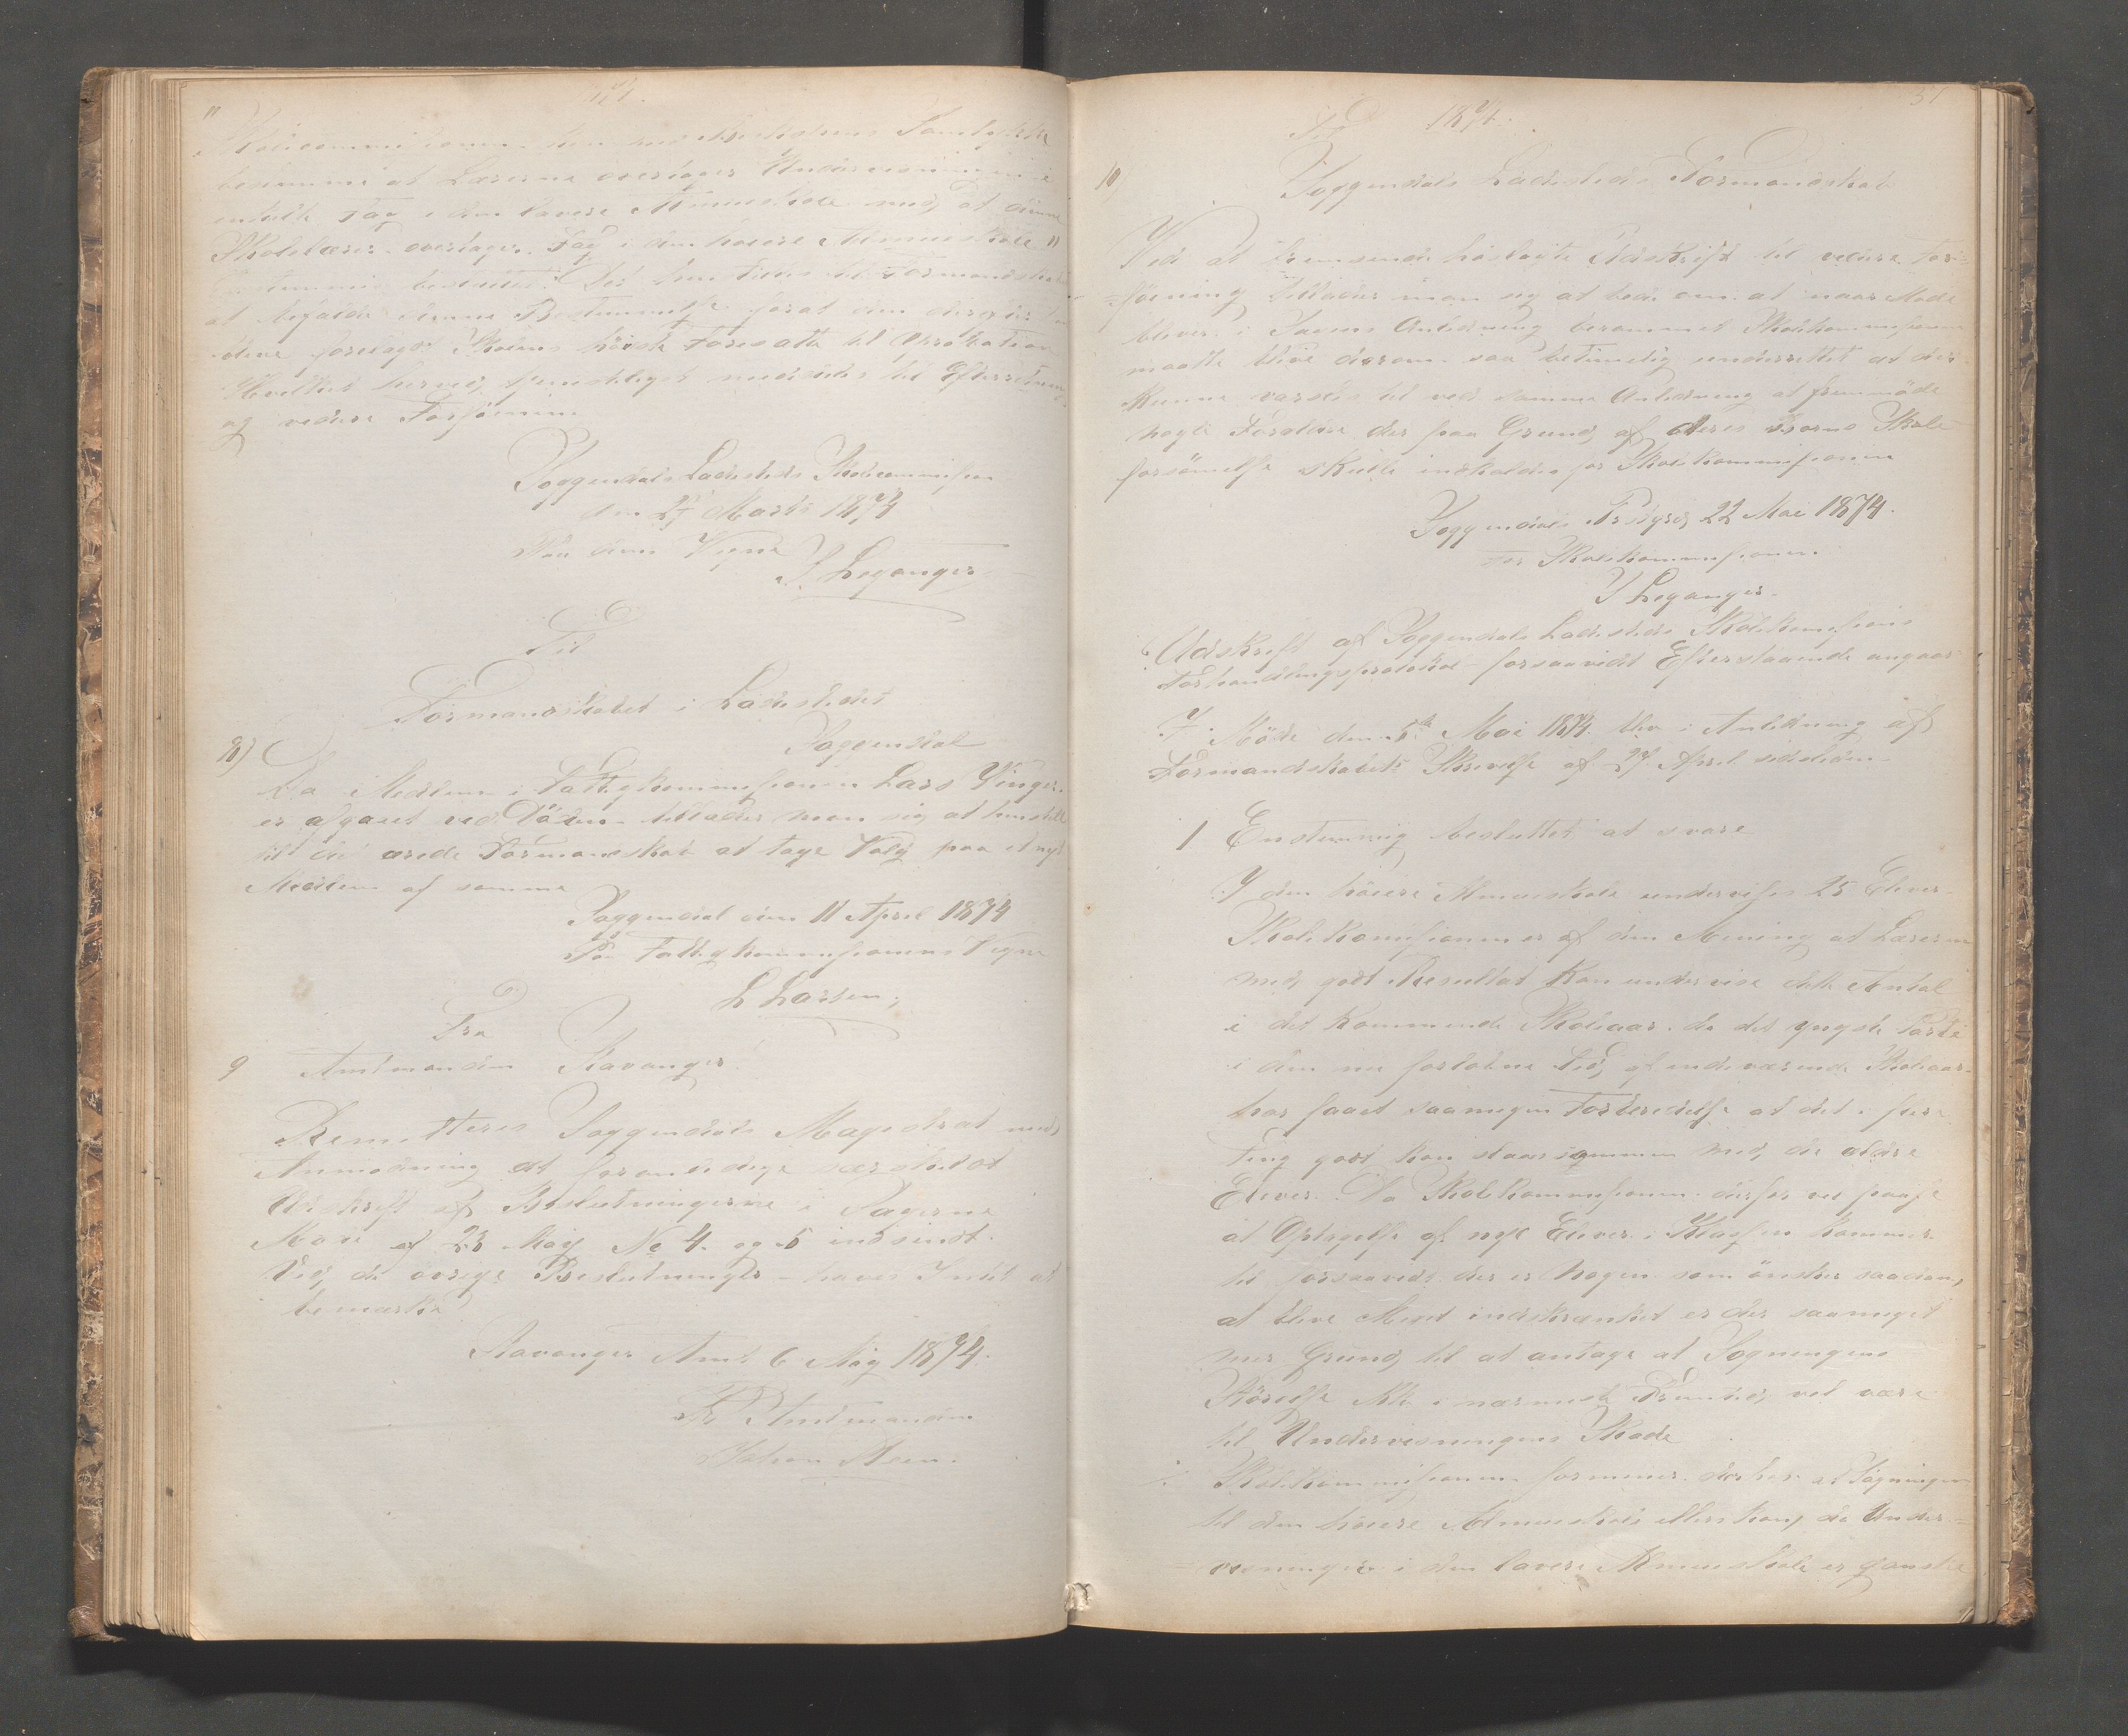 1874.
"
Skolecommissionen kan med Direktionens Samtykke
bestemme at Lærerne overtager Undervisningen i
enkelte Fag i den lavere Almueskole mod, at denne
Skolelærer overtager Fag i den høiere Almueskole "
Enstemmig besluttet: Det henstilles til Formandskabet
at bifalde denne Bestemmelse forat den derefter kan
blive forelagt Skolens høieste Foresatte til Approbation
Hvilket herved tjenstligst meddeles til Efterretning
og videre Forføining
Soggendals Ladesteds Skolecommission
den 27 Marts 1874
Paa dens Vegne
J. Leganger
Til
Formandskabet i Ladestedet
Soggendal
8)
Da Medlem i Fattigkommissionen Lars
er afgaaet ved Døden tillader man sig at henstille
til det ærede Formandskab at tage Valg paa et nyt
Medlem af samme
Soggendal den 11 April 1874
Paa Fattigkommissionens Vegne
L Larsen
Fra
9 Amtmanden Stavanger
Remitteres Soggendals Magistrat med
Anmodning at foranledige særskilt
Udskrift af Beslutningerne i Sagerne
af 23 Maj No 4. og 5 indsendt.
Ved de øvrige Beslutninger haves Intet at
bemærke
Stavanger Amt 6 Maj 1874.
Amtmanden
51
Til 1874.
10 Soggendals Ladesteds Formandskab
Ved at fremsende hoslagte Udskrift til videre For=
=føining tillader man sig at bede om at naar Møde
bliver i Sagens Anledning berammet Skolekommissionen
maatte blive derom saa betimelig underrettet at der
kunne varsles til ved samme Anledning at fremmøde
nogle Forældre der paa Grund af deres Børns Skole
forsømmelse skulle indkaldes for Skolekommissionen
Soggendals Prstgrd 22 Mai 1874.
For Skolekommissionen
J Leganger
Udskrift af Soggendals Ladesteds Skolekommissions
Forhandlingsprotokol forsaavidt Efterstaaende angaar
I Møde den 5te Mai 1874 blev i Anledning af
Formandskabets Skrivelse af 27 April sidstleden
1 Enstemmig besluttet at svare
I den høiere Almueskole undervises 25 Elever
Skolekommissionen er af den Mening at Læreren
med godt Resultat kan undervise dette Antal
i det kommende Skoleaar da det yngste Parti
i den nu forløbne Tid af indeværende Skoleaar
har faaet saamegen Forberedelse at det i flere
Ting godt kan slaaes sammen med de ældre
Elever. Da Skolekommissionen derfor vil paase
at Optagelse af nye Elever i Klassen kommer
til forsaavidt der er nogen som ønsker saadan,
at blive Mest indskrænket er der saameget
mer Grund til at antage at Søgningens
Størrelse ikke i nærmeste Fremtid vil være
til Undervisningens Skade
Skolekommissionen formener derhos at Søgningen
til den høiere Almueskole da Under=
=visningen i den lavere Almueskole er ganske